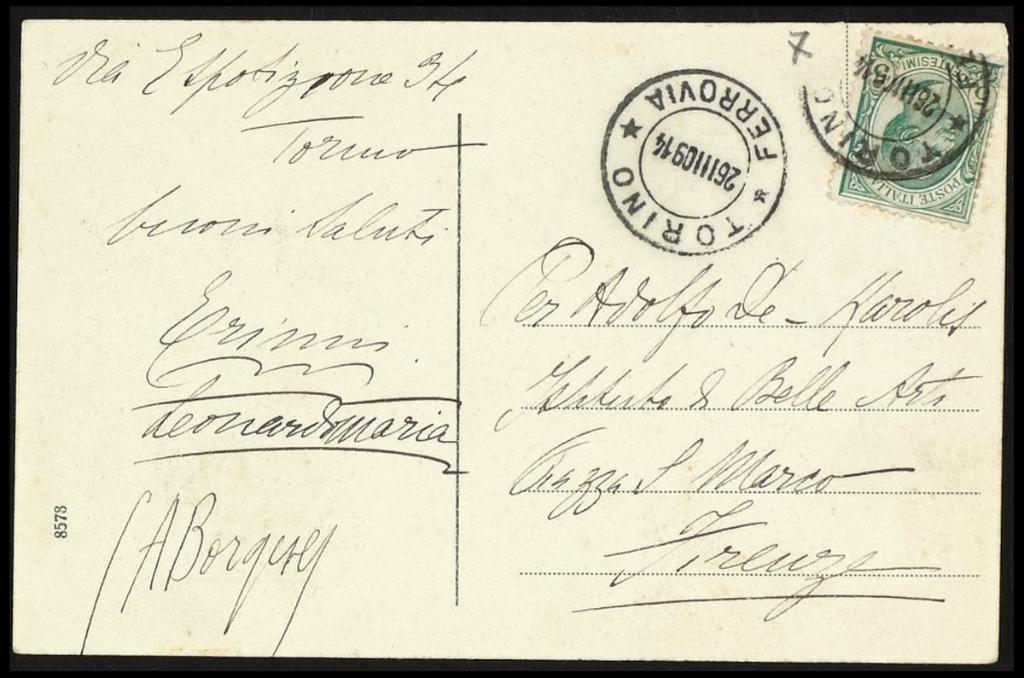 Via Esposizione
Torino
buoni Saluti
Erinni
Leonardo Maria
GABorgese
8578
7
TORINO * FERROVIA *
26III0914
TORINO
CENTESIMI 5
POSTE ITALIANE
Per Adolfo De-Karolis
Istituto di Belle Arti
Piazza S Marco
Firenze